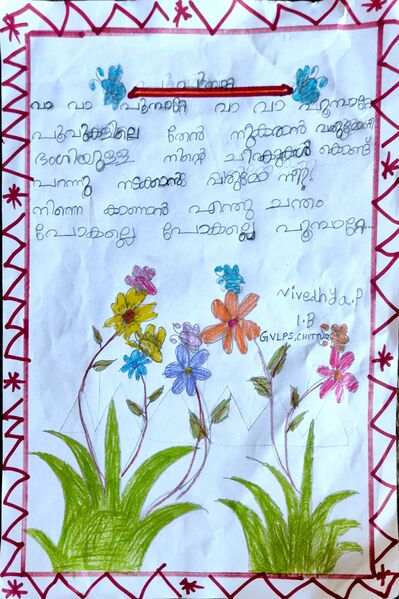 വാ വാ പൂമ്പാറ്റേ വാ വാ പൂമ്പാറ്റേ
പൂവുകളിലെ തേൻ നുകരാൻ വരുമോ നീ
ഭംഗിയുള്ള നിന്റെ ചിറകുകൾ കൊണ്ട്
പറന്നു നടക്കാൻ വരുമോ നീ?
നിന്നെ കാണാൻ എന്തു ചന്തം
പോകല്ലെ പോകല്ലെ പൂമ്പാറ്റേ...
Nivedhya.P
1.B
GVLPS, CHITTUR